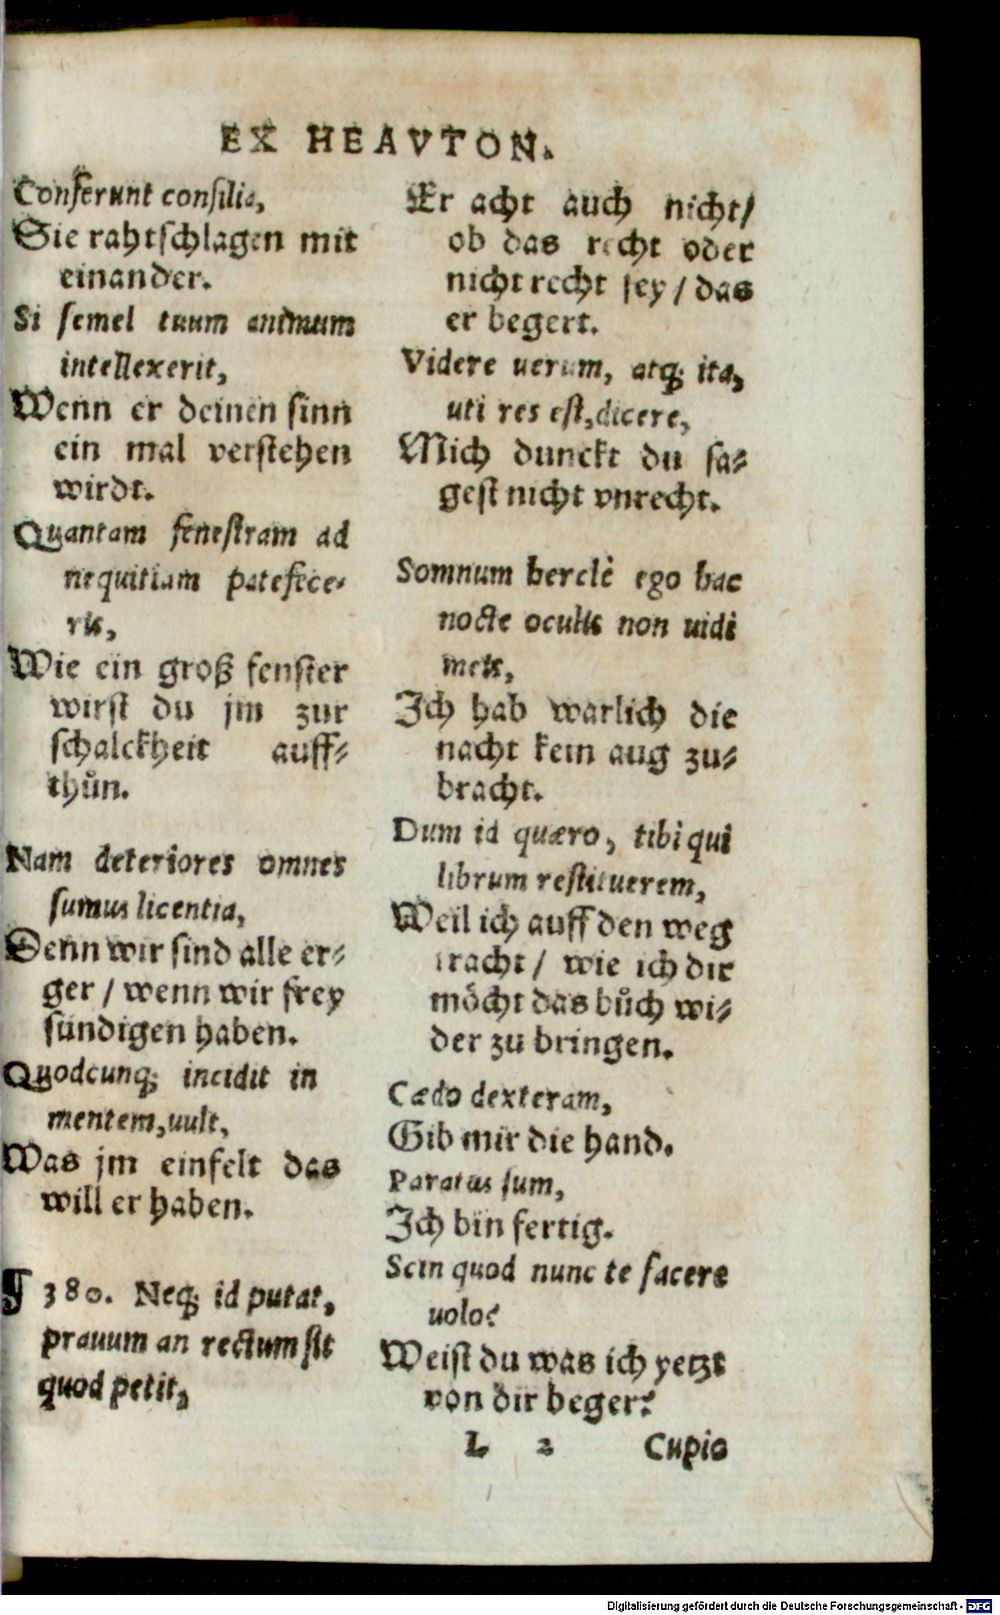 EX HEAVTON.
Conferunt consilia,
Sie rahtschlagen mit
einander.
Si semel tuum animum
intellexerit,
Wenn er deinen sinn
ein mal verstehen
wirdt.
Quantam fenestram ad
nequitiam patefece-
ris,
Wie ein groß fenster
wirst du jm zur
schalckheit auff-
thůn.
Nam deteriores omnes
sumus licentia,
Denn wir sind alle er-
ger / wenn wir frey
sündigen haben.
Quodcunq; incidit in
mentem, uult,
Was jm einfelt das
will er haben.
¶ 380. Neq; id putat,
prauum an rectum sit
quod petit,
Er acht auch nicht /
ob das recht oder
nicht recht sey / das
er begert.
Videre uerum, atq; ita,
uti res est, dicere,
Mich dunckt du sa-
gest nicht vnrecht.
Somnum herclè ego hac
nocte oculis non uidi
meis,
Ich hab warlich die
nacht kein aug zu-
bracht.
Dum id quæro, tibi qui
librum restituerem,
Weil ich auff den weg
tracht / wie ich dir
möcht das bůch wi-
der zu bringen.
Cædo dexteram,
Gib mir die hand.
Paratus sum,
Ich bin fertig.
Scin quod nunc te facere
uolo?
Weist du was ich yetzt
von dir beger?
L 2 Cupio
Digitalisierung gefördert durch die Deutsche Forschungsgemeinschaft - DFG